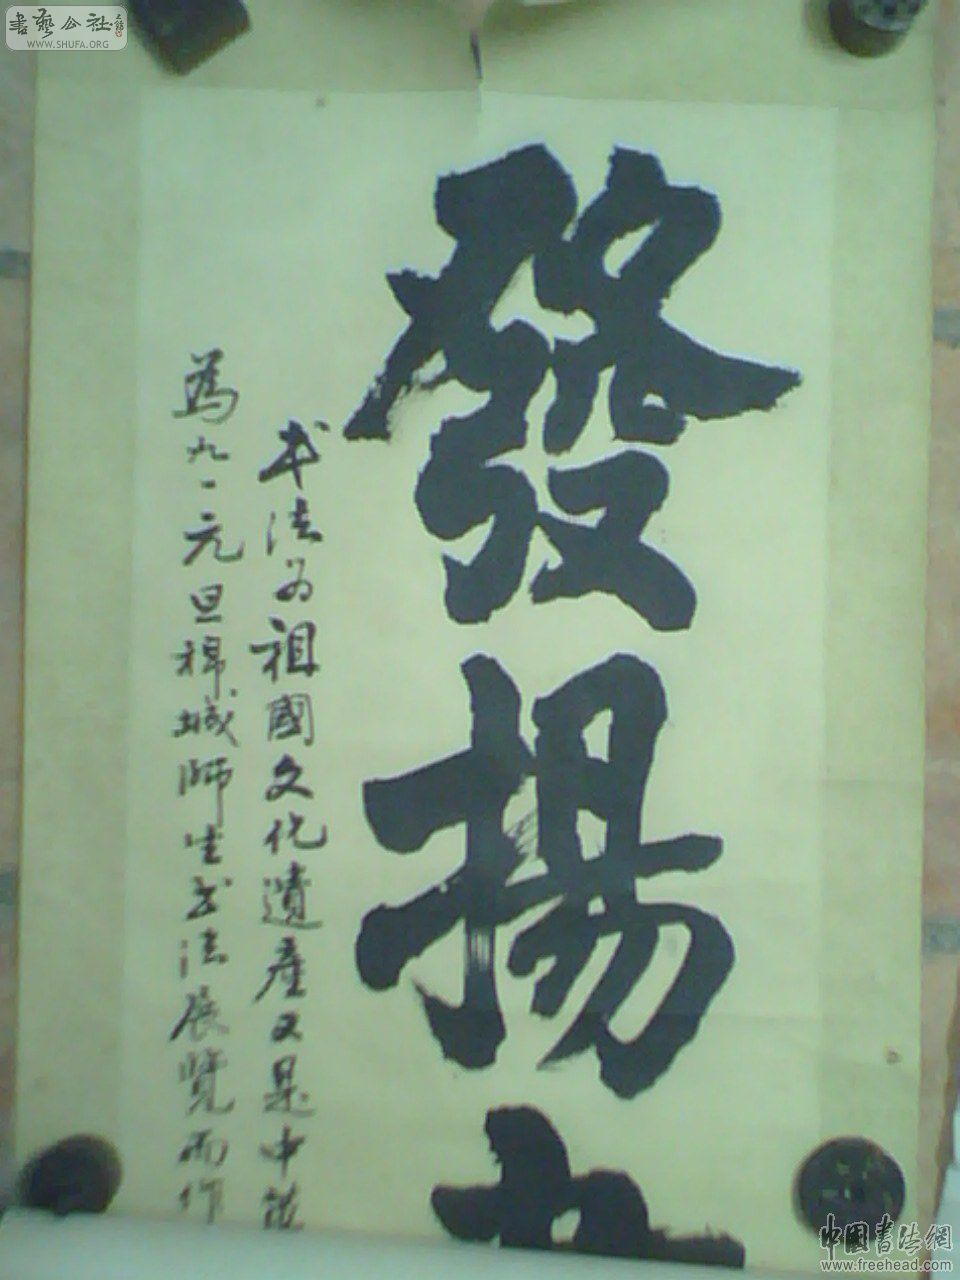 發揚
书法为祖國文化遺產又是中
為九一元旦棉城師生书法展覽而作
書藝公社
WWW.SHUFA.ORG
中國書法網
www.freehead.com